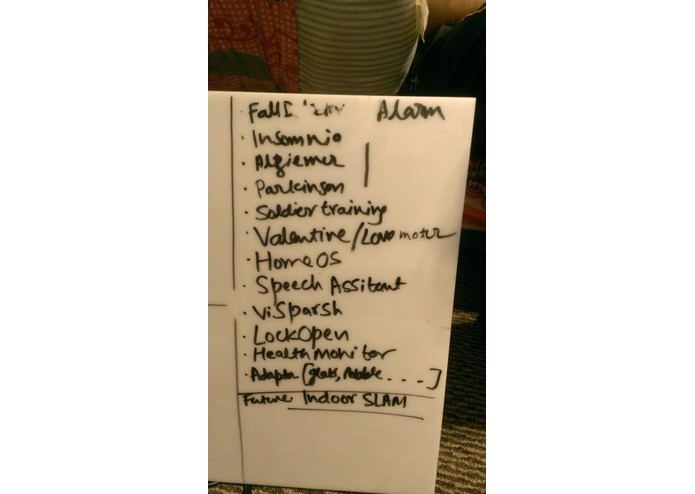 Alarm
· Insomnia
· Alziemer
· Parkinson
· Soldier training
· Valentine/Love
· Home OS
· Speech Assitant
· ViSparsh
· LockOpen
· Health Monitor
[glass, Pebble - - - - ]
Future: Indoor SLAM